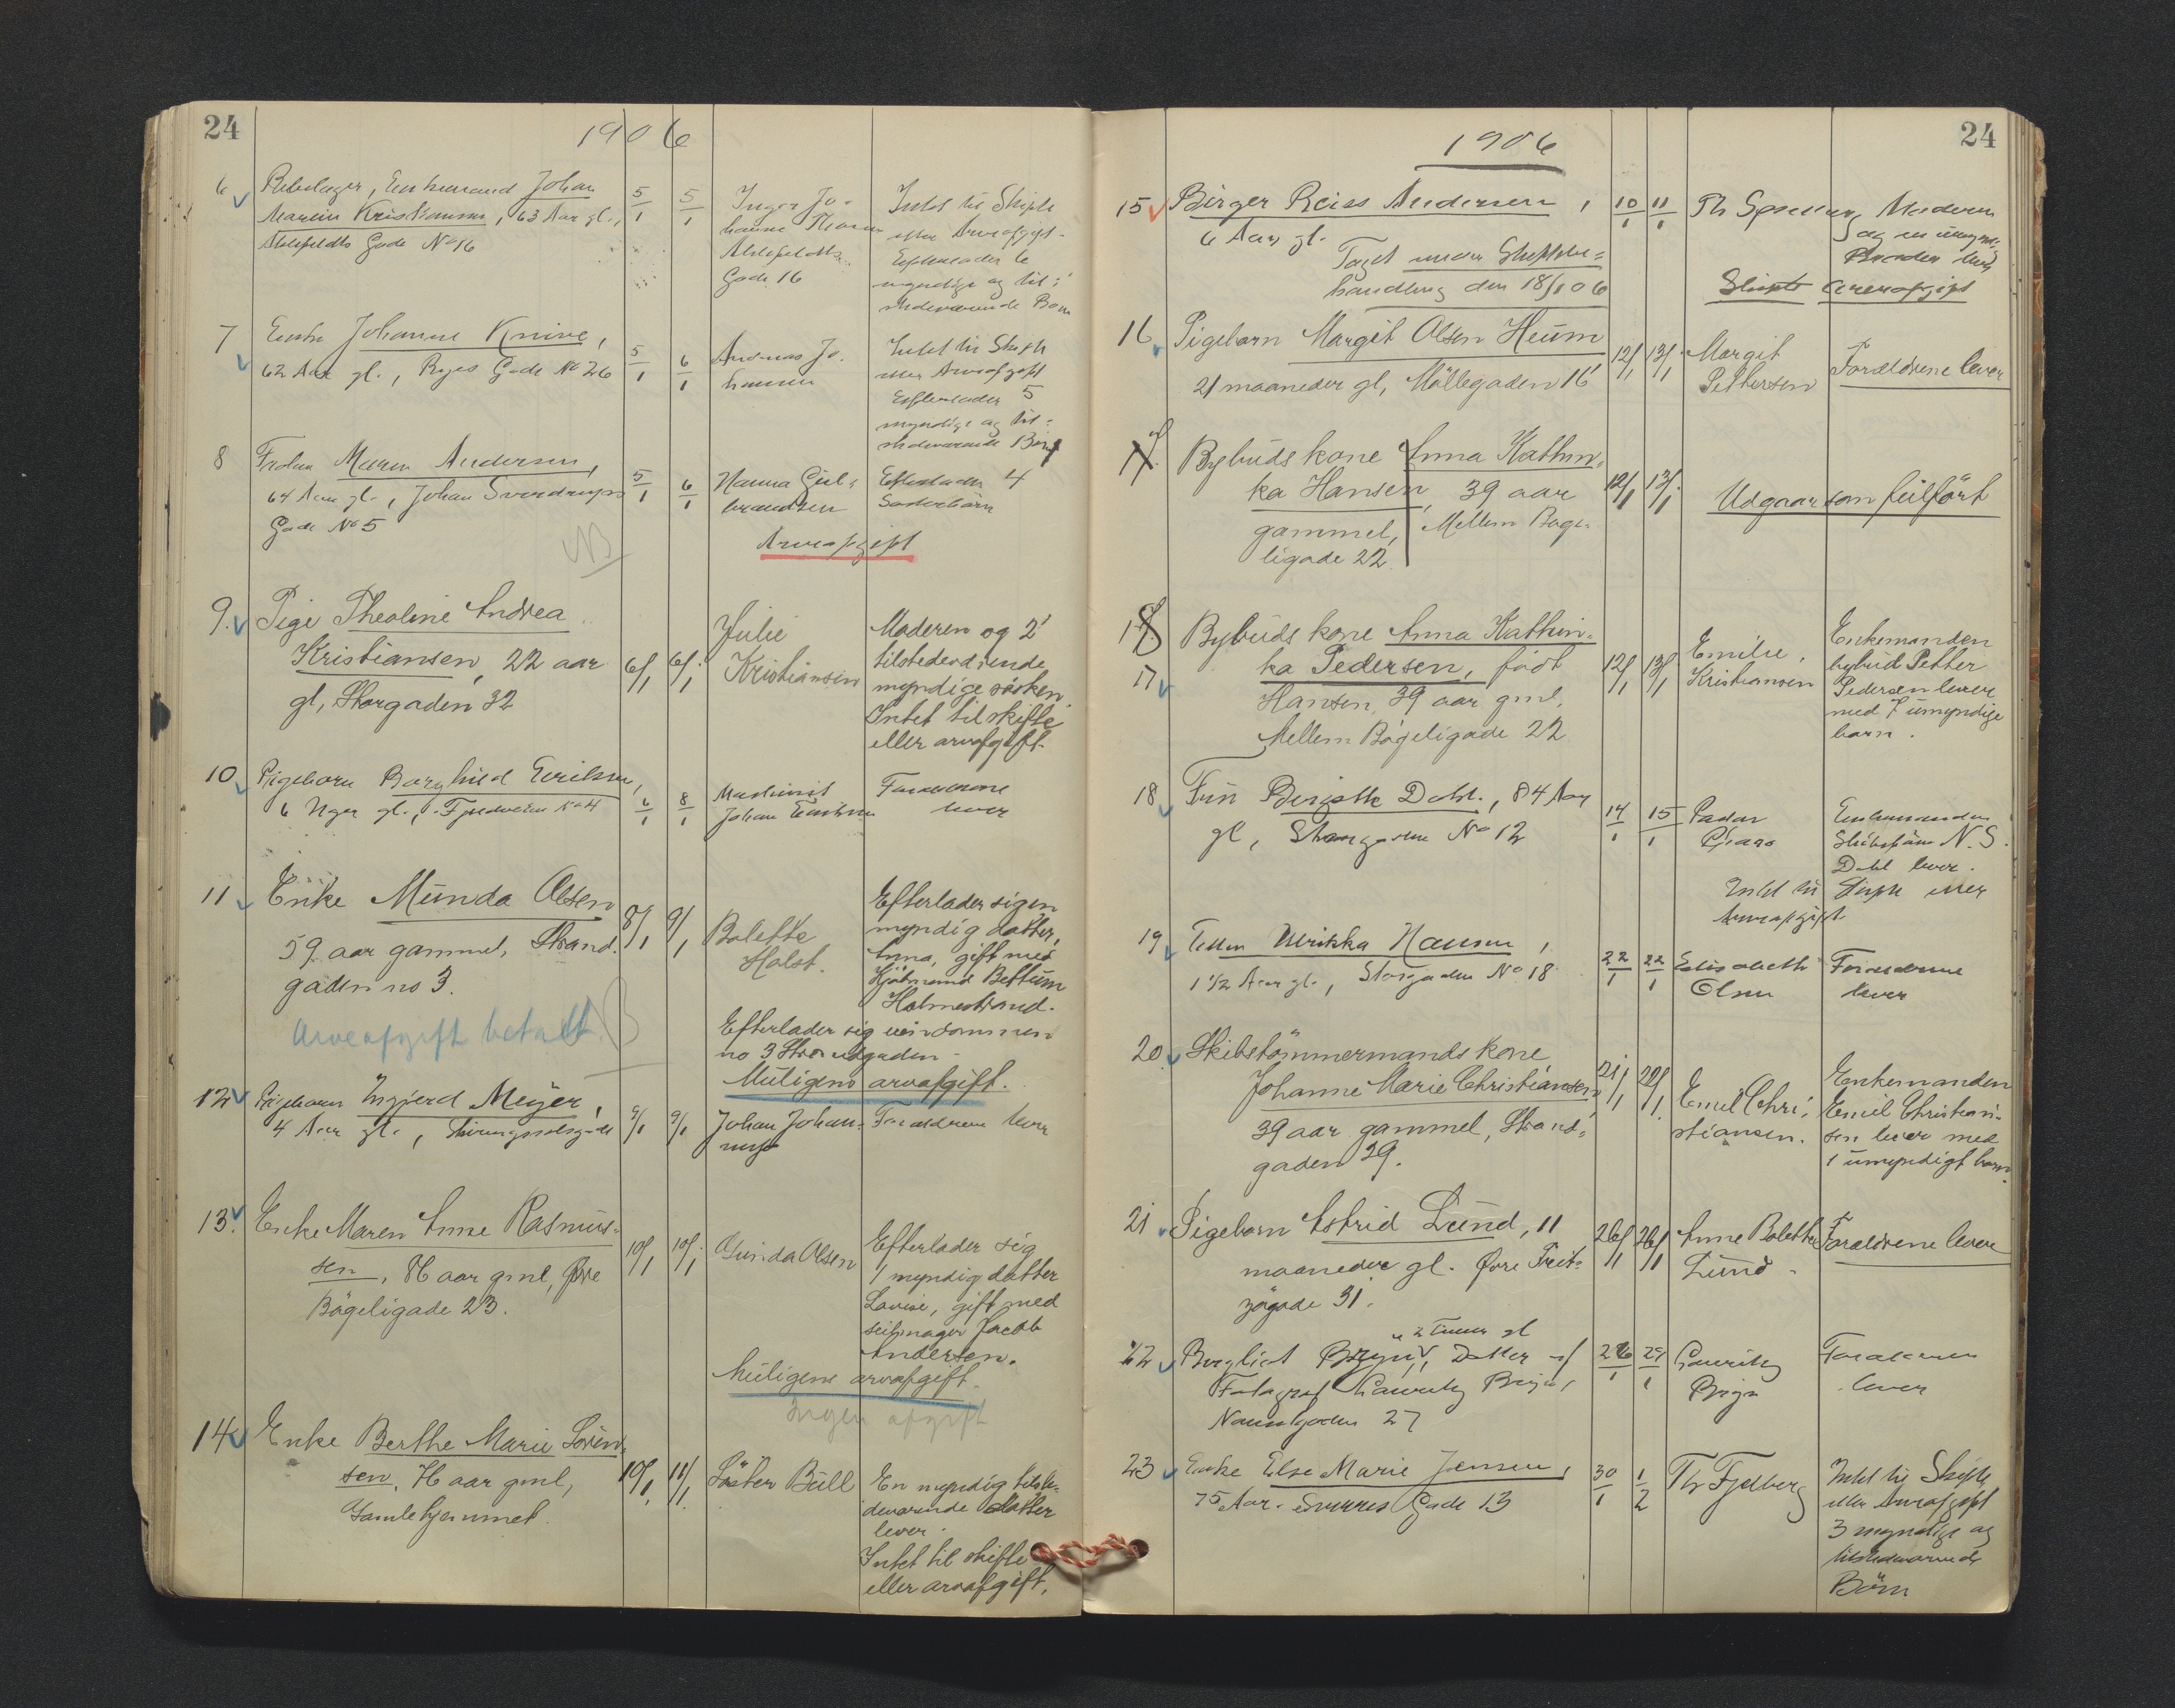 24
1906
6 Enkemand Johan
Marein Kristiansen, 63 Aar gl.,
Gade No 16
5/1 5/1
Inger Jo-
hanne
Gade 16
Intet til Skifte
eller Arveafgift.
Efterlader 6
myndige og til-
stedeværende Børn
7 Enke Johanne Knive,
62 Aar gl., Ryes Gade No 26
5/1 6/1
Andreas Jo-
hansen
Intet til Skifte
eller Arveafgift
Efterlader 5
myndige og til-
stedeværende Børn
8 Maren Andersen,
64 Aar gl., Johan Sverdrups
Gade No 5
5/1 6/1
Hanna Gul-
brandsen
Efterlader 4
Søsterbørn
NB
Arveafgift
9. Pige Theoline Andrea
Kristiansen, 22 aar
gl, Storgaden 32
6/1 6/1
Julie
Kristiansen
Moderen og 2
tilstedeværende
myndige søsken
Intet til skifte
eller arvafgift.
10 Pigebarn Borghild Eriksen,
6 Uger gl., No 4
6/1 8/1
Maskinist
Johan Eriksen
Forældrene
lever
11 Enke Munda Olsen
59 aar gammel, Strand-
gaden no 3.
8/1 9/1
Bolette
Holst.
Efterlader sig en
myndig datter,
Anna, gift med
Bettum
Holmestrand.
Arveafgift betalt.
Efterlader sig eiendommen
no 3 Strandgaden.
Muligens arvafgift.
12 Pigebarn Ingjerd Meyer,
4 Aar gl.,
9/1 9/1
Johan Johan-
nesen
Forældrene lever
13. Enke Maren Anne Rasmus-
sen, 86 aar gml, Øvre
Bøgeligade 23.
10/1 10/1
Gunda Olsen
Efterlader sig
1 myndig datter
Lovise, gift med
seilmager Jacob
Andersen.
Muligens arvafgift.
Ingen afgift
14 Enke Berthe Marie Soren-
sen, 76 aar gml,
Gamlehjemmet.
10/1 11/1
Søster Bull
En myndig tilste-
deværende datter
lever.
Intet til skifte
eller arvafgift.
1906
24
15 Birger Reiss Andersen,
6 Aar gl.
10/1 11/1
Th
Moderen
og en umyndig
Broder lever
Taget under Skiftebe-
handling den 18/1 06
Skifte Arveafgift
16 Pigebarn Margit Olsen Heum
21 maaneder gl, Møllegaden 16
12/1 13/1
Margit
Pettersen
Forældrene lever
17. Bybuds kone Anna Kathin-
ka Hansen, 39 aar
gammel, Mellem Bøge-
ligade 22
12/1 13/1
Udgaar som feilført
18 Bybuds kone Anna Kathin-
17 ka Pedersen, født
Hansen, 39 aar gml,
Mellem Bøgeligade 22
12/1 13/1
Emilie
Kristiansen
Enkemanden
bybud Petter
Pedersen lever
med 7 umyndige
barn.
18 Fru Dahl, 84 Aar
gl, Storgaden No 12
14/1 15/1
Enkemanden
N. S.
Dahl lever.
Intet til Skifte eller
Arveafgift.
19 Ulrikka Hansen,
1 1/2 Aar gl., Storgaden No 18
22/1 22/1
Elisabeth
Olsen
Forældrene
lever
20 Skibstømmermands kone
Johanne Marie Christiansen
39 aar gammel, Strand-
gaden 29.
21/1 22/1
Emil Chri-
stiansen.
Enkemanden
Emil Christian-
sen lever med
1 umyndigt barn.
21 Pigebarn Astrid Lund, 11
maaneder gl. Øvre Frit-
zøgade 31.
26/1 26/1
Anne Bolette
Lund
Forældrene lever
2 Timer gl
22 Bergliot Datter af
Fotograf Lauritz
27
26/1 29/1
Lauritz
Forældrene
lever
23 Enke Else Marie Jensen,
75 Aar. Sverres Gade 13
30/1 1/2
Th Fjelberg
Intet til Skifte
eller Arveafgift
3 myndige og
tilstedeværende
Børn